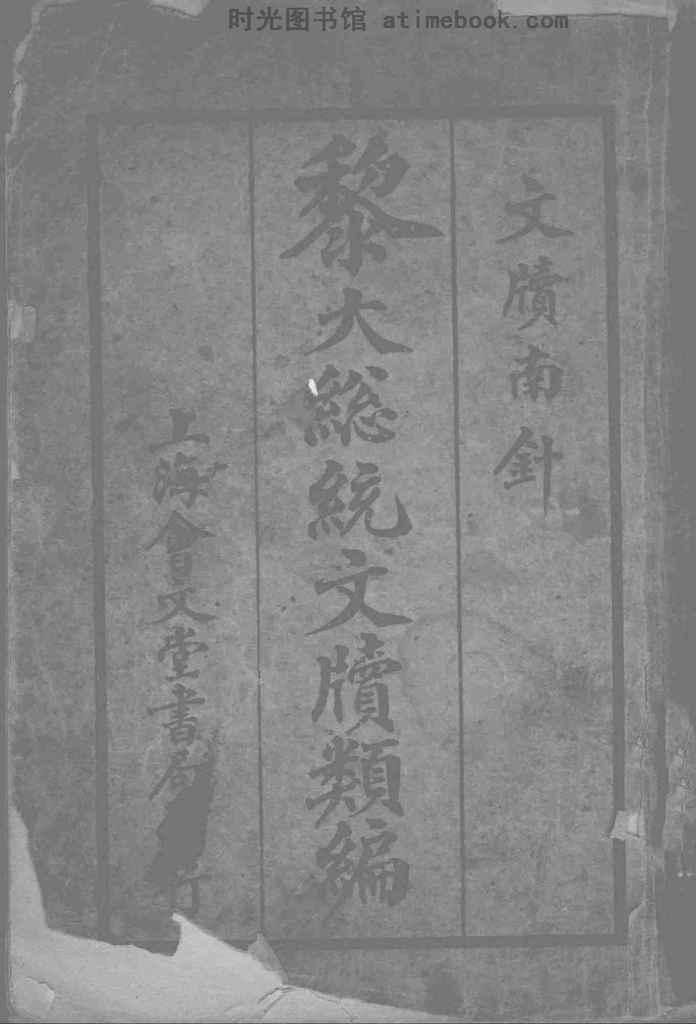 时光图书馆 atimebook.com
文牘南針
黎大総統文牘類編
上海會文堂書局 行